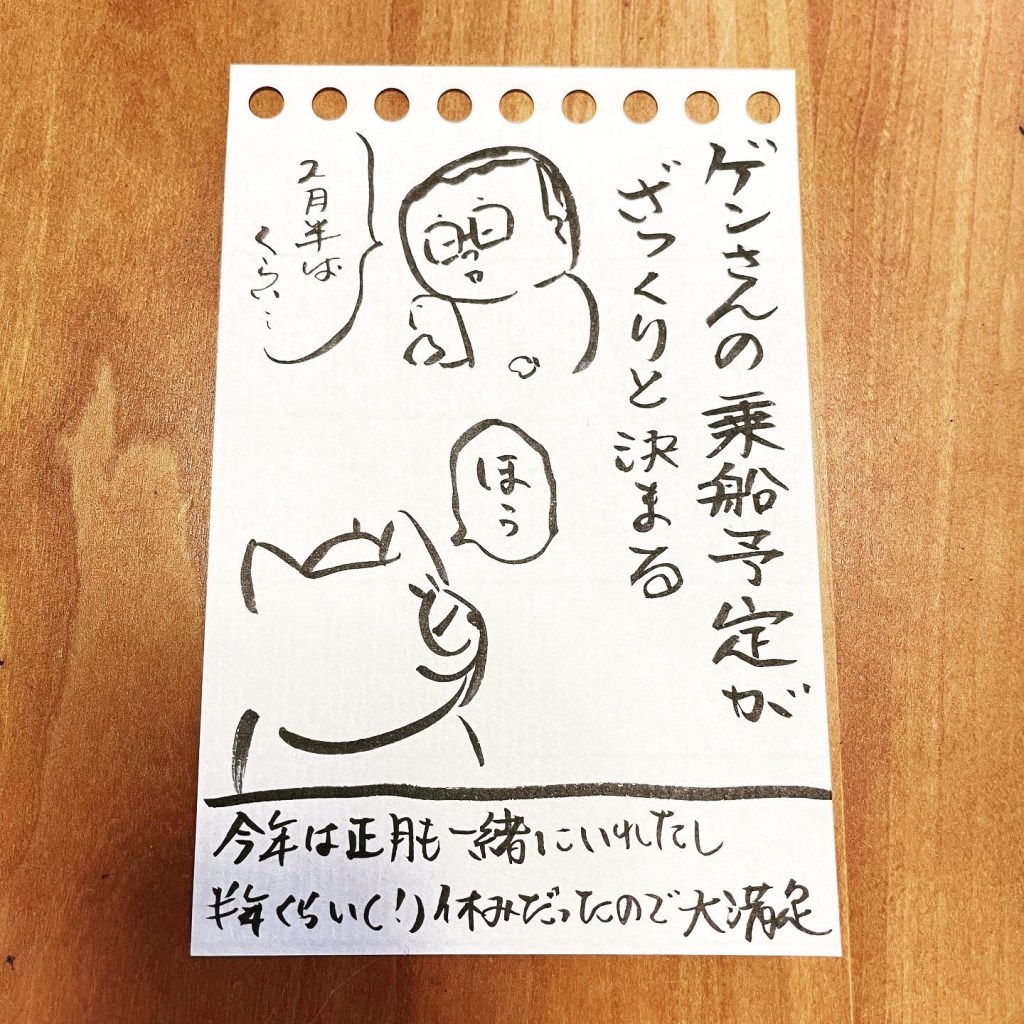 ゲンさんの乗船予定が
ざっくりと決まる
2月半ば
くらい…
ほぅ
今年は正月も一緒にいれたし
半年くらい(!)休みだったので大満足